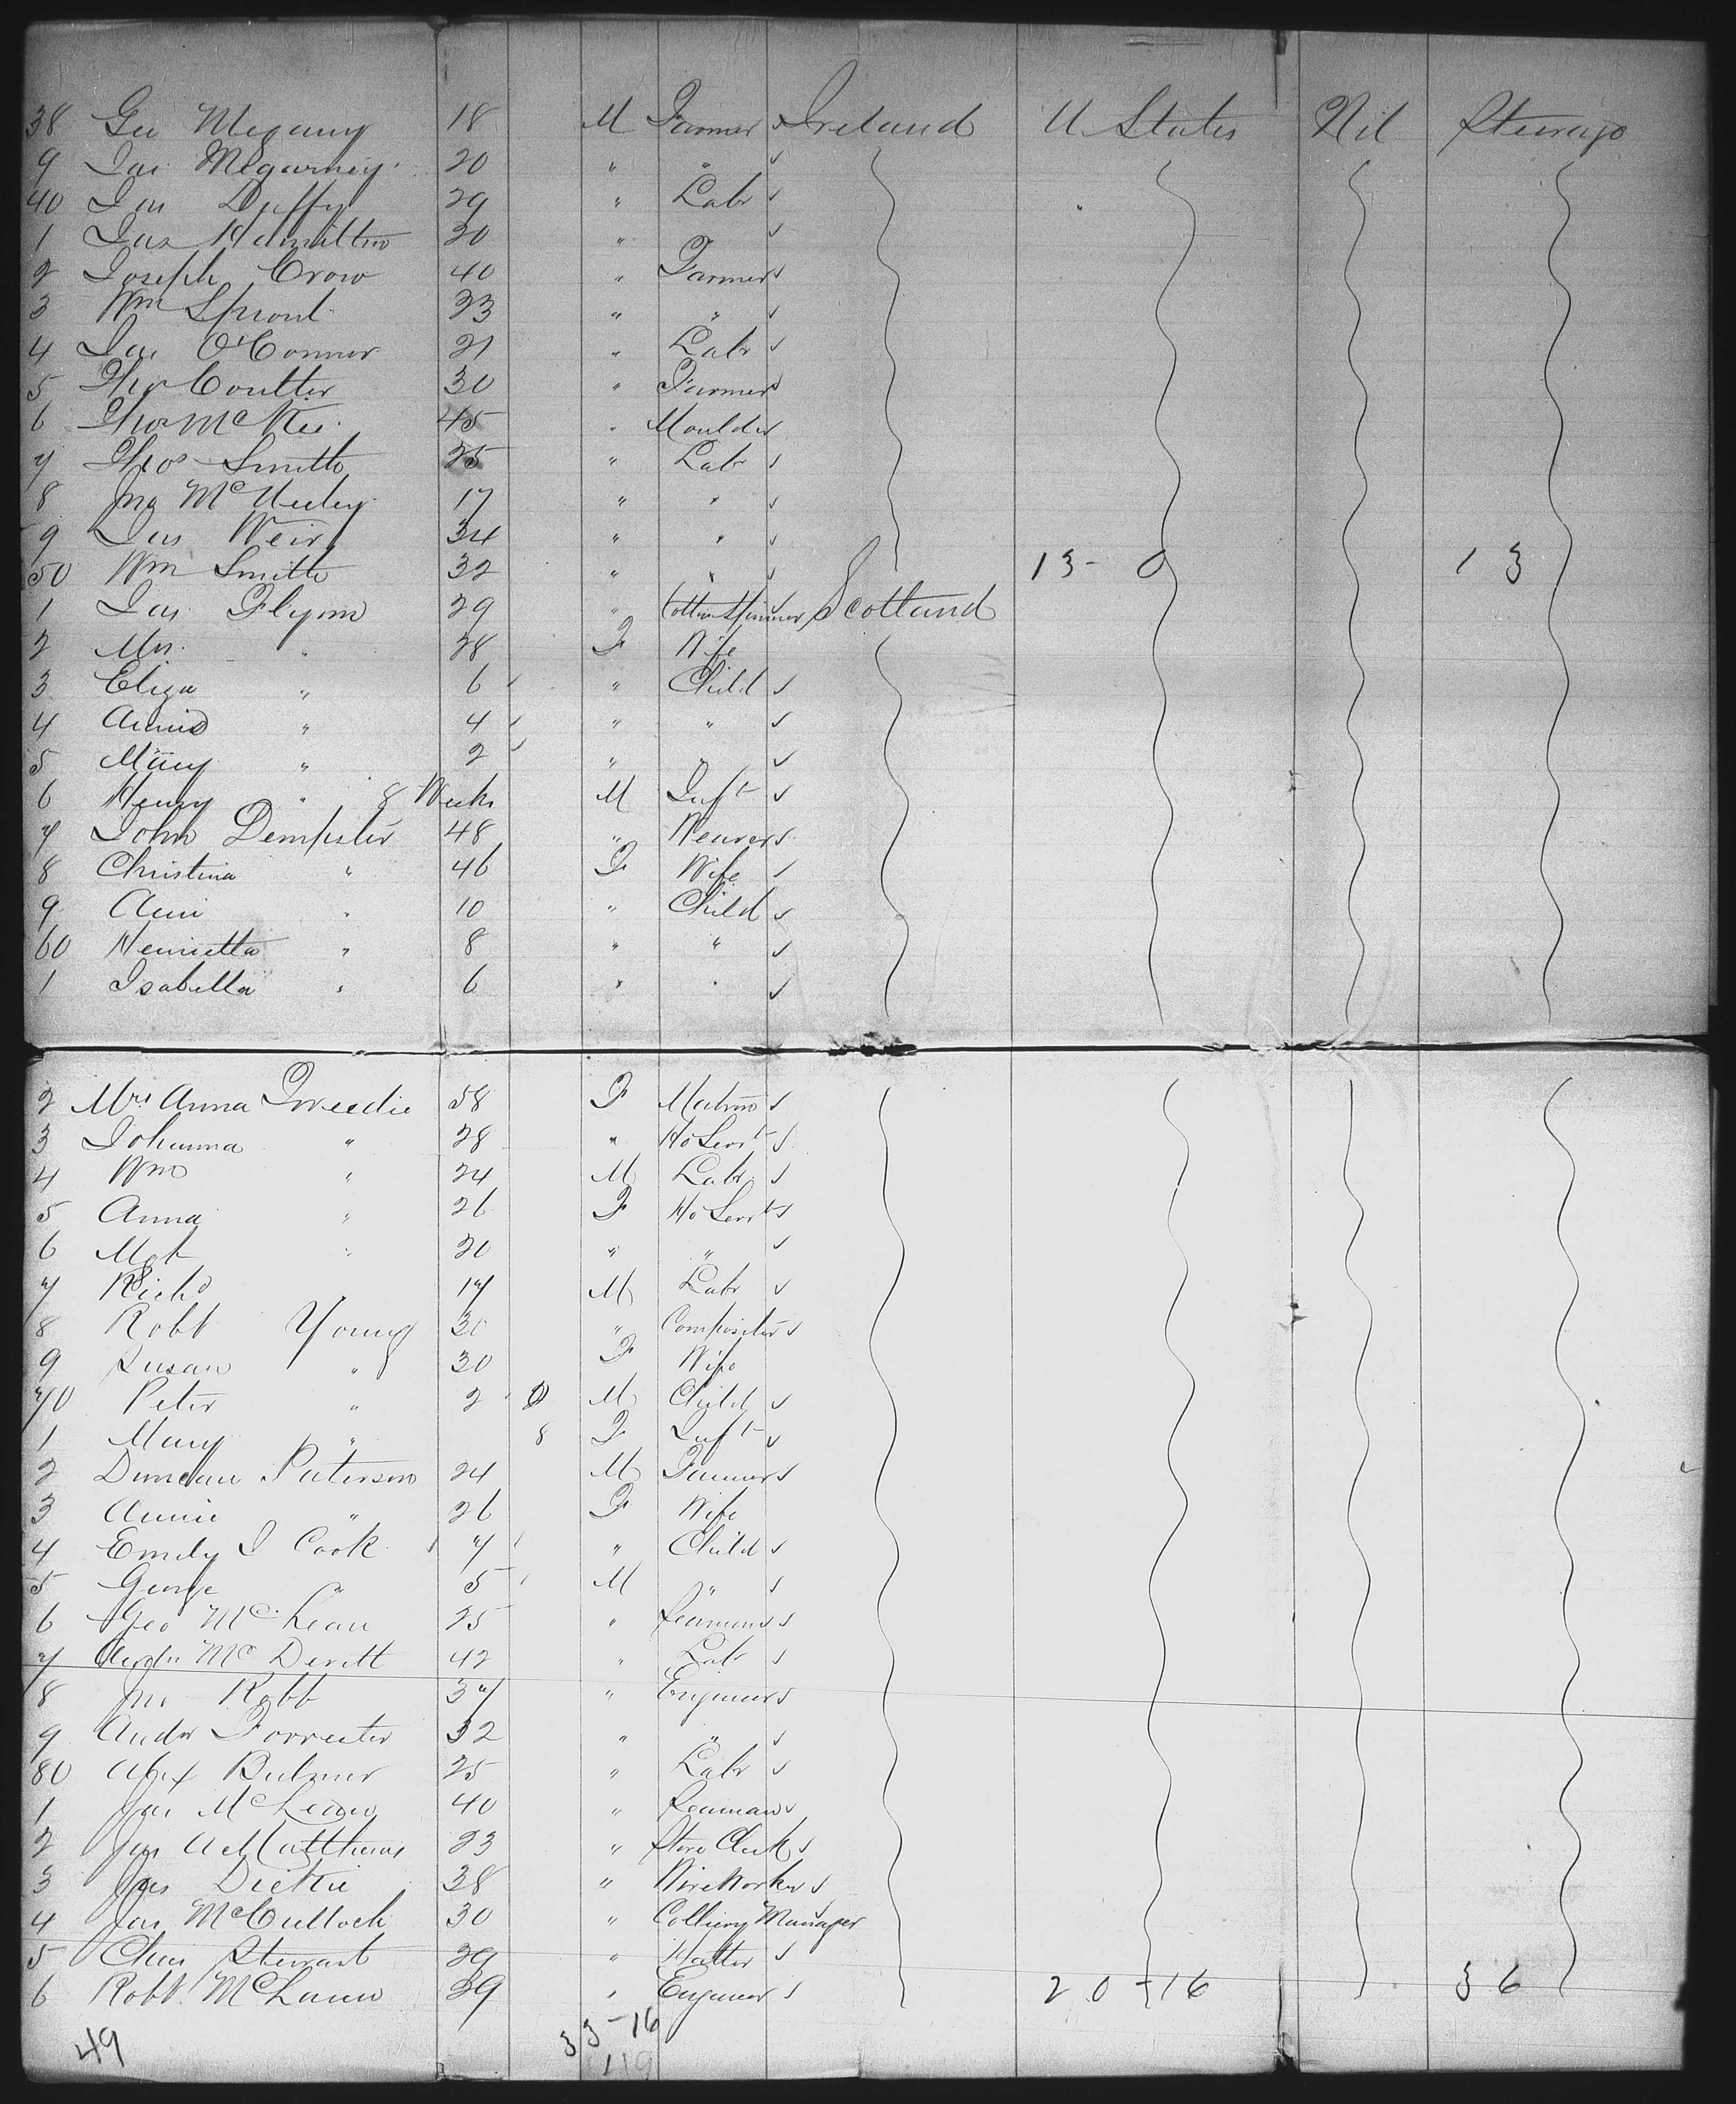 38 Geo Megauny 18 M Farmer Ireland U States Nil Steerage
9 Jas Megarney 20 " "
40 Jas Duffy 29 " Labr
1 Jas Hamilton 30 "
2 Joseph Crow 40 " Farmer
3 Wm Sproul 23 " "
4 Jas O'Connor 21 " Labr
5 Thos Coulter 30 " Farmer
6 Thos McKee 45 " Moulder
7 Thos Smith 25 " Labr
8 Jno Mc 17 " "
9 Jas Weir 34 " "
50 Wm Smith 32 " " 13-0 13
1 Jas Flynn 29 " Cotton Spinner Scotland
2 Mrs " 28 F Wife
3 Eliza " 6 " Child
4 Annie " 4 " "
5 Mary " 2 " "
6 Henry " 8 Weeks M Inft
7 John Dempster 48 " Weaver
8 Christina " 46 F Wife
9 " 10 " Child
60 Henrietta " 8 " "
1 Isabella " 6 " "
2 Mrs Anna Tweedie 58 F Matron
3 Johanna " 28 " Ho Servt
4 Wm " 24 M Labr
5 Anna " 26 F Ho Servt
6 Mgt " 20 " "
7 Richd " 17 M Labr
8 Robt Young 30 " Compositor
9 Susan " 30 F Wife
70 Peter " 2 M Child
1 Mary " 8 F Inft
2 Duncan Paterson 24 M Farmer
3 Annie " 26 F Wife
4 Emily J Cook 7 " Child
5 George " 5 M "
6 Geo McLean 25 " Seaman
7 Andw McDevitt 42 " Labr
8 Jno Robb 37 " Engineer
9 Andw Forrester 32 " "
80 Alex Bulmer 25 " Labr
1 Jas McLean 40 " Seaman
2 Jas A Matthews 23 " Store Clerk
3 Jas Dickie 38 " Wireworker
4 Jas McCulloch 30 " Colliery Manager
5 Chas Stewart 29 " Hatter
6 Robt McLaren 39 " Engineer 20-16 36
49 33-16
119